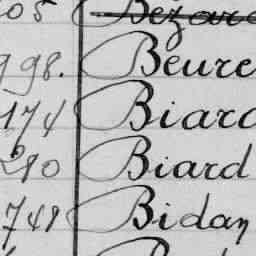 05 Bezard
98. Beure
174 Biard
280 Biard
748 Bidan